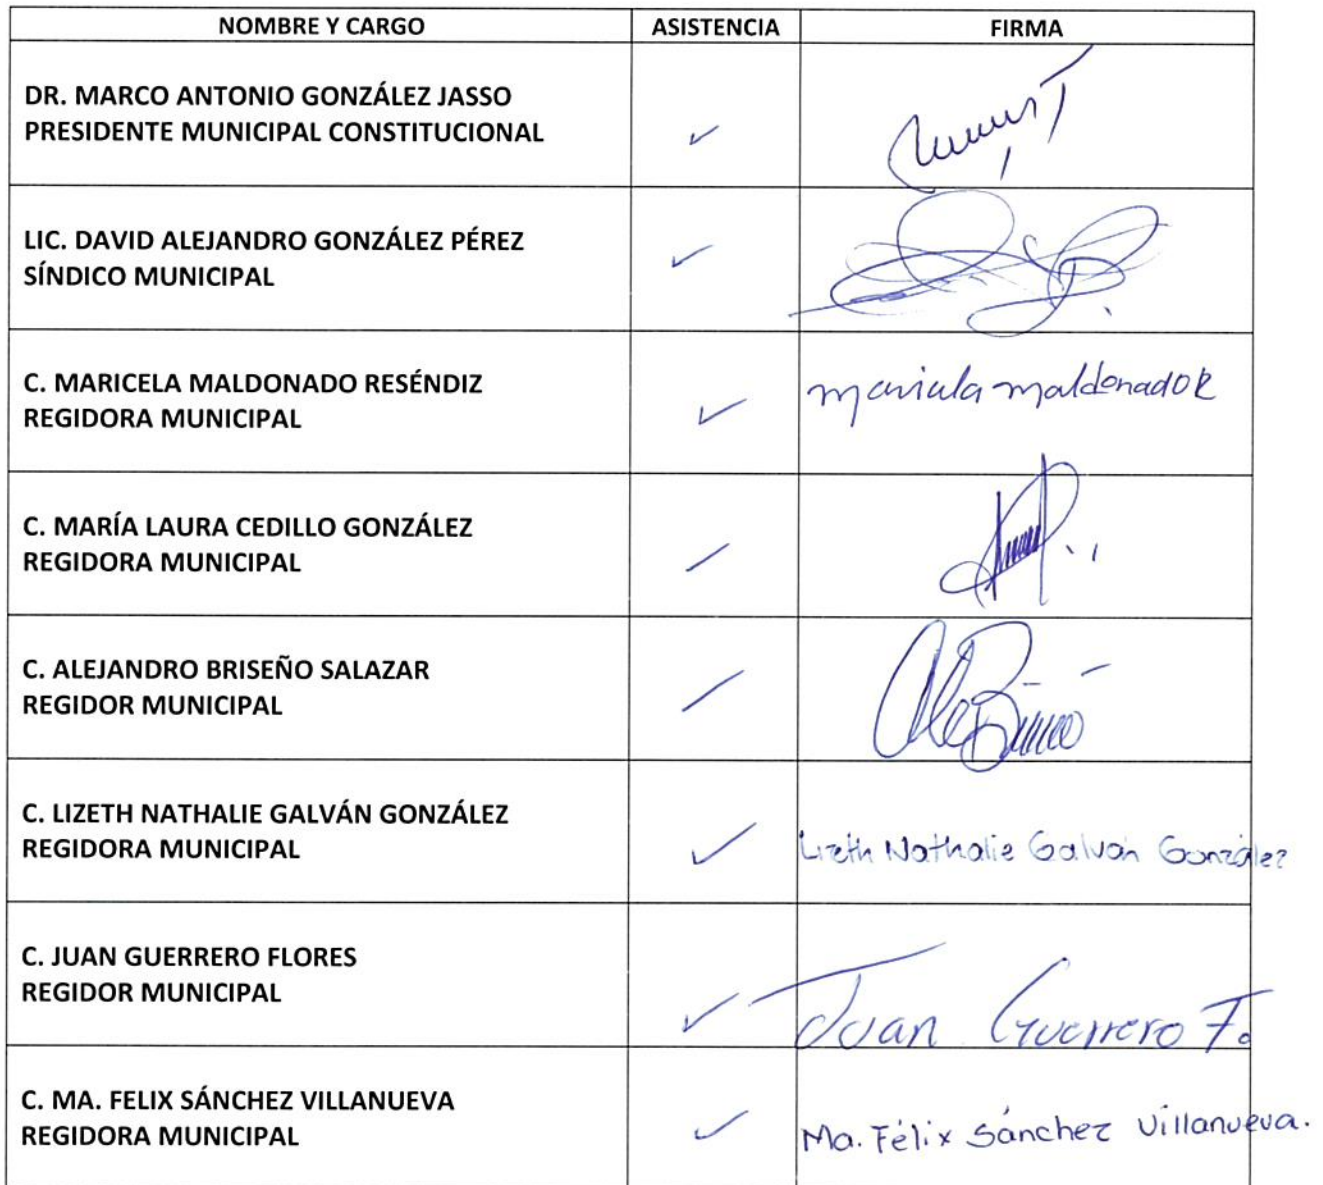 NOMBRE Y CARGO ASISTENCIA FIRMA
DR. MARCO ANTONIO GONZÁLEZ JASSO
PRESIDENTE MUNICIPAL CONSTITUCIONAL
LIC. DAVID ALEJANDRO GONZÁLEZ PÉREZ
SÍNDICO MUNICIPAL
C. MARICELA MALDONADO RESÉNDIZ
REGIDORA MUNICIPAL
maricela maldonado R
C. MARÍA LAURA CEDILLO GONZÁLEZ
REGIDORA MUNICIPAL
C. ALEJANDRO BRISEÑO SALAZAR
REGIDOR MUNICIPAL
C. LIZETH NATHALIE GALVÁN GONZÁLEZ
REGIDORA MUNICIPAL
Lizeth Nathalie Galván González
C. JUAN GUERRERO FLORES
REGIDOR MUNICIPAL
Juan Guerrero F.
C. MA. FELIX SÁNCHEZ VILLANUEVA
REGIDORA MUNICIPAL
Ma. Félix Sánchez Villanueva.